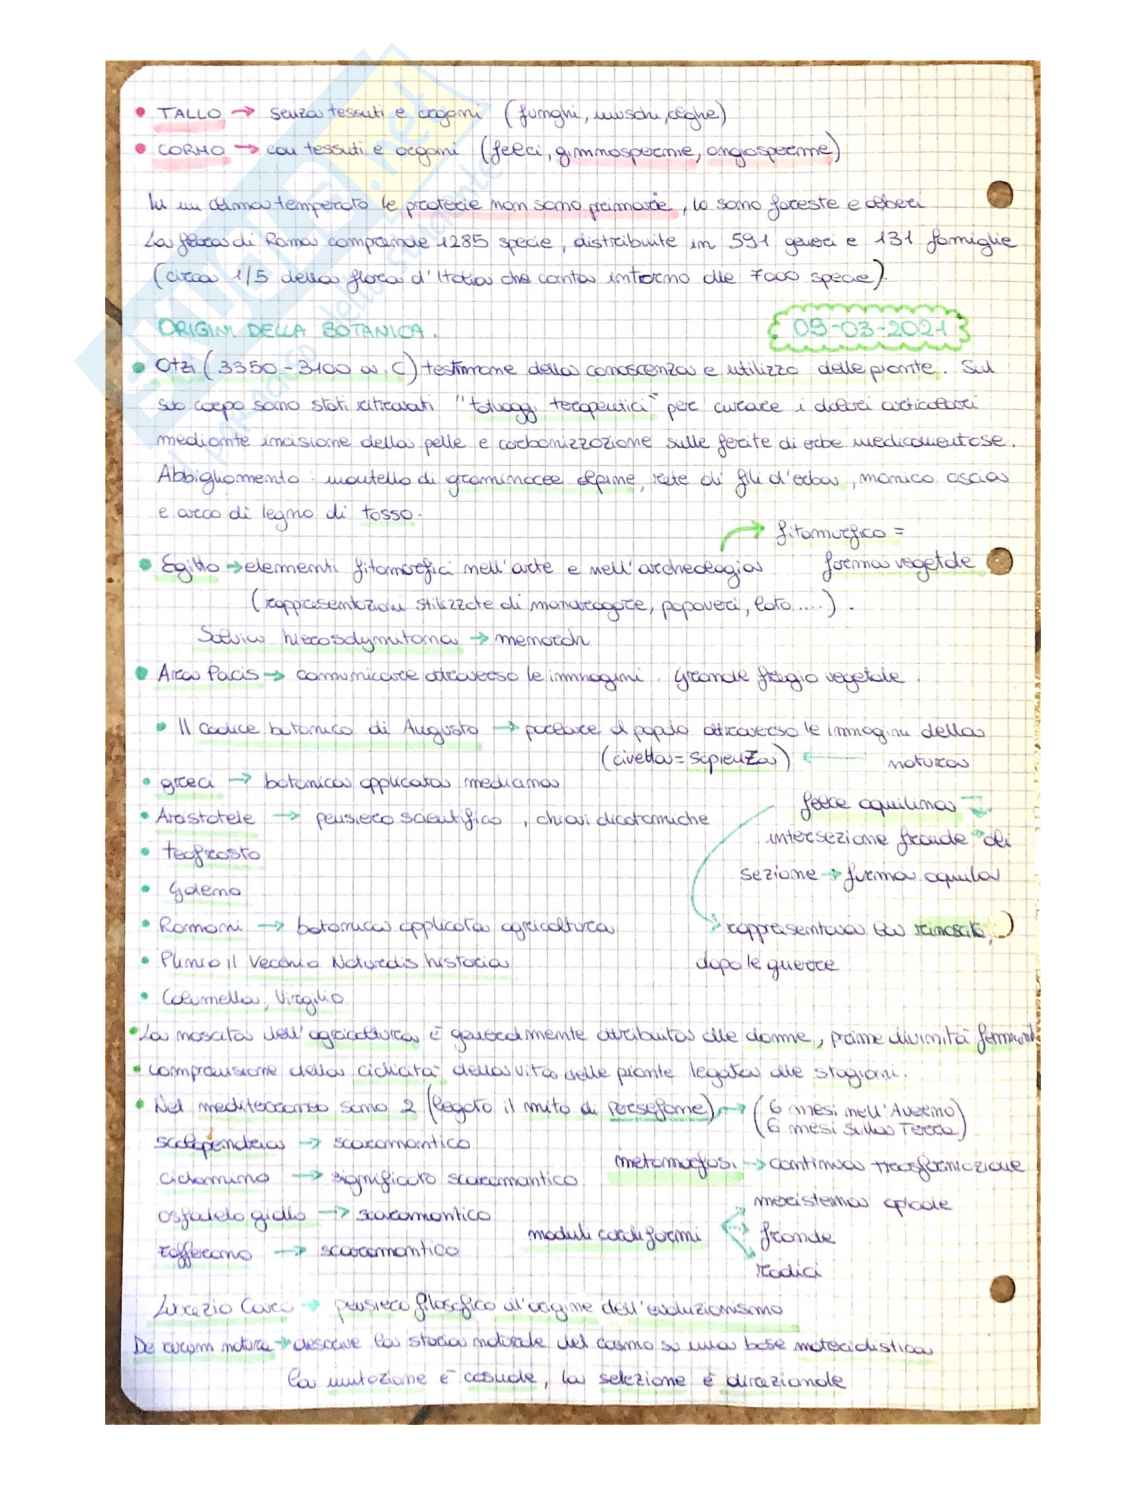 • TALLO → senza tessuti e organi (funghi, muschi, alghe)
• CORMO → con tessuti e organi (felci, gimmosperme, angiosperme)
In un clima temperato le praterie non sono primarie, lo sono foreste e alberi
La flora di Roma comprende 1285 specie, distribuite in 591 generi e 131 famiglie
(circa 1/5 della flora d'Italia che conta intorno alle 7000 specie).
ORIGINI DELLA BOTANICA.
09-03-2021
• Otzi (3350-3100 a.C) testimone della conoscenza e utilizzo delle piante. Sul
suo corpo sono stati ritrovati "tatuaggi terapeutici" per curare i dolori articolari
mediante incisione della pelle e carbonizzazione sulle ferite di erbe medicamentose.
Abbigliamento: mantello di graminacee alpine, rete di fili d'erba, manico ascia
e arco di legno di tasso.
fitomorfico =
• Egitto → elementi fitomorfici nell'arte e nell'archeologia
forma vegetale
(rappresentazioni stilizzate di mandragore, papaveri, loto.....).
Salvia hierosolymitana → menorah
• Ara Pacis → comunicare attraverso le immagini. Grande fregio vegetale.
• Il codice botanico di Augusto → parlare al popolo attraverso le immagini della
(civetta = sapienza) ← natura
• greci → botanica applicata medicina
felce aquilina →
• Aristotele → pensiero scientifico, chiavi dicotomiche
intersezione fronde di
• Teofrasto
sezione → forma aquila
• Galeno
• Romani → botanica applicata agricoltura
rappresentava la rinascita
• Plinio il Vecchio Naturalis historia
dopo le guerre
• Columella, Virgilio
• La nascita dell'agricoltura è generalmente attribuita alle donne, prime divinità femminili
• comprensione della ciclicità della vita delle piante legata alle stagioni.
• Nel mediterraneo sono 2 (legato il mito di Persefone) → (6 mesi nell'Averno)
(6 mesi sulla Terra)
→ scaramantico
metamorfosi → continua trasformazione
ciclamino → significato scaramantico
meristema apicale
asfodelo giallo → scaramantico
moduli cordiformi
fronde
zafferano → scaramantico
radici
Lucrezio Caro → pensiero filosofico all'origine dell'evoluzionismo
De rerum natura → descrive la storia naturale del cosmo su una base materialistica
la mutazione è casuale, la selezione è direzionale